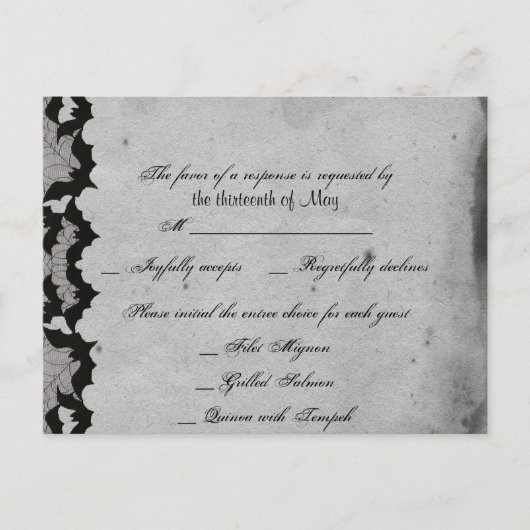 The favor of a response is requested by
the thirteenth of May
M____________________
__ Joyfully accepts __ Regretfully declines
Please initial the entree choice for each guest
__ Filet Mignon
__ Grilled Salmon
__ Quinoa with Tempeh